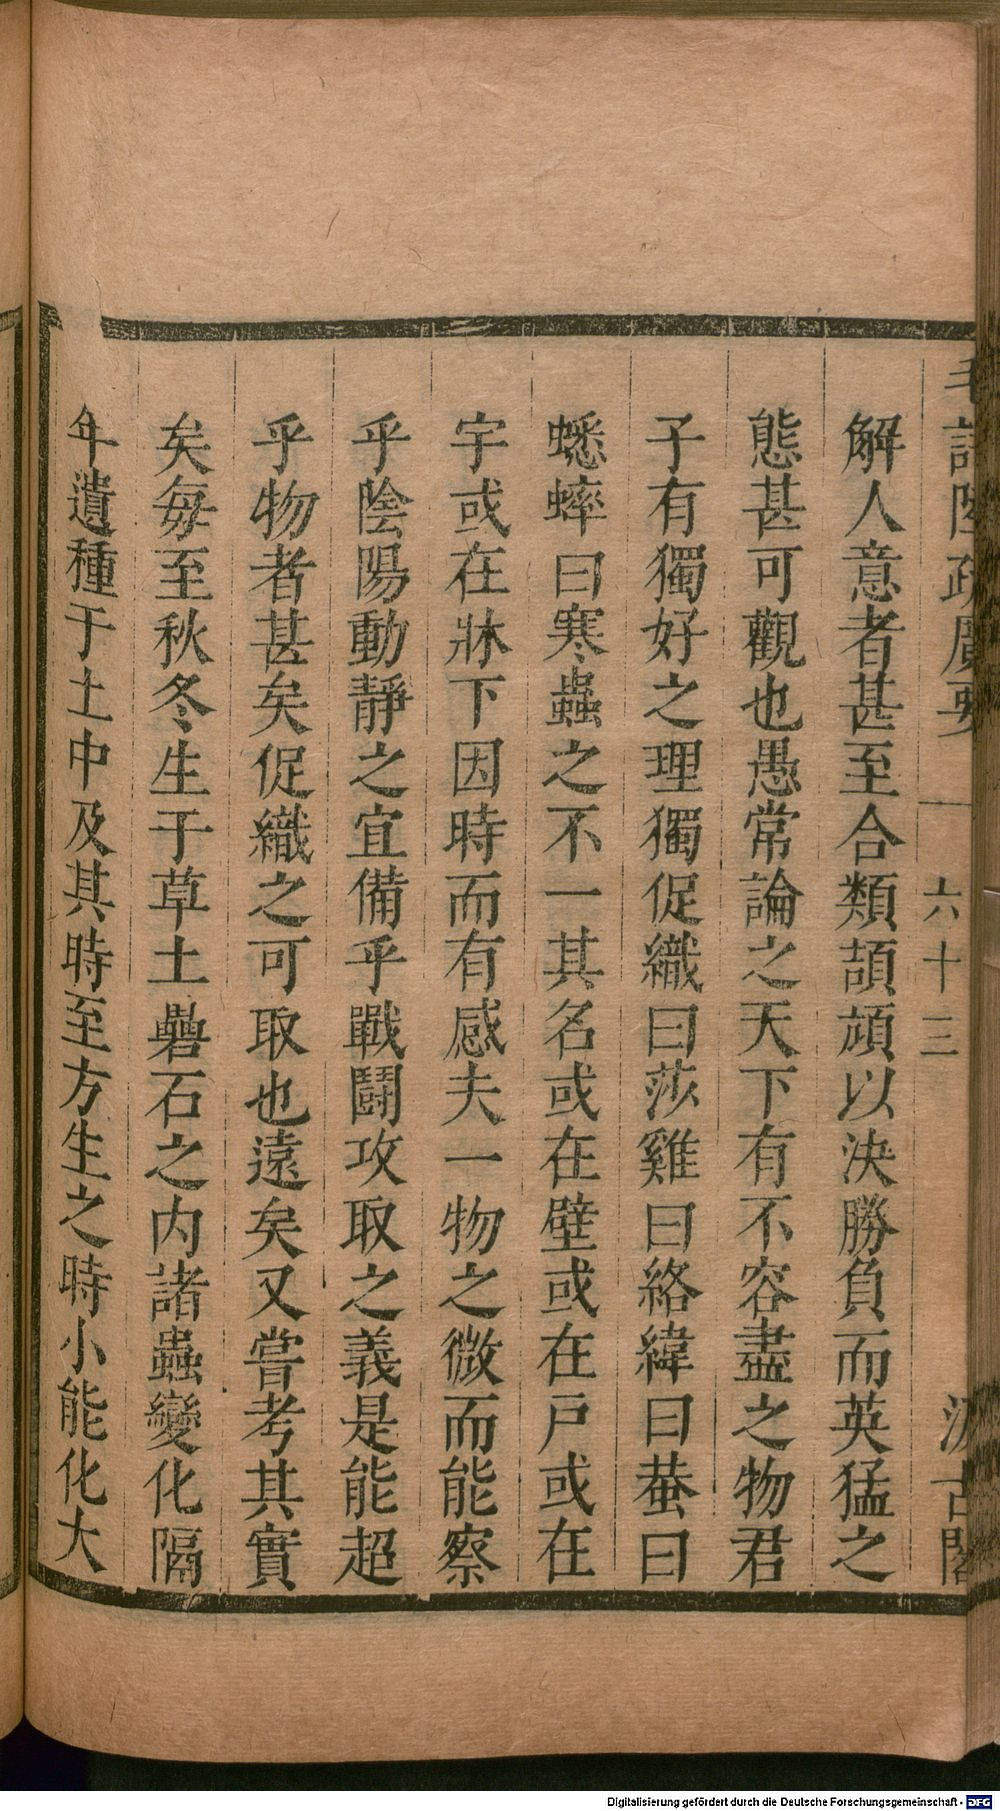 毛詩陸疏廣要
六十三
汲古閣
解人意者甚至合類頡頏以決勝負而英猛之
態甚可觀也愚常論之天下有不容盡之物君
子有獨好之理獨促織曰莎雞曰絡緯曰蛬曰
蟋蟀曰寒蟲之不一其名或在壁或在戶或在
宇或在牀下因時而有感夫一物之微而能察
乎陰陽動靜之宜備乎戰鬪攻取之義是能超
乎物者甚矣促織之可取也遠矣又嘗考其實
矣每至秋冬生于草土礨石之内諸蟲變化隔
年遺種于土中及其時至方生之時小能化大
Digitalisierung gefördert durch die Deutsche Forschungsgemeinschaft - DFG